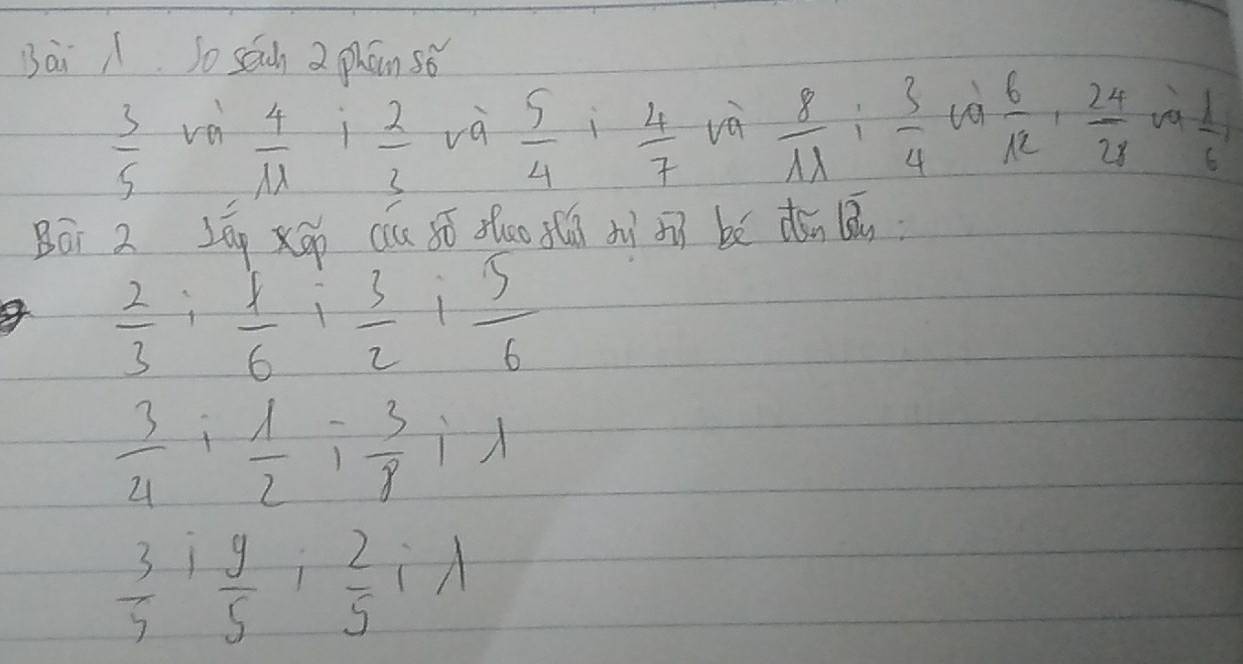 Bài 1. So sánh 2 phân số
3/5 và 4/11 ; 2/3 và 5/4 ; 4/7 và 8/11 ; 3/4 và 6/12 , 24/28 và 1/6 ;
Bài 2 Sắp xếp các số theo thứ tự từ bé đến lớn :
2/3 ; 1/6 ; 3/2 ; 5/6
3/4 ; 1/2 ; 3/8 ; 1
3/5 ; 9/5 ; 2/5 ; 1